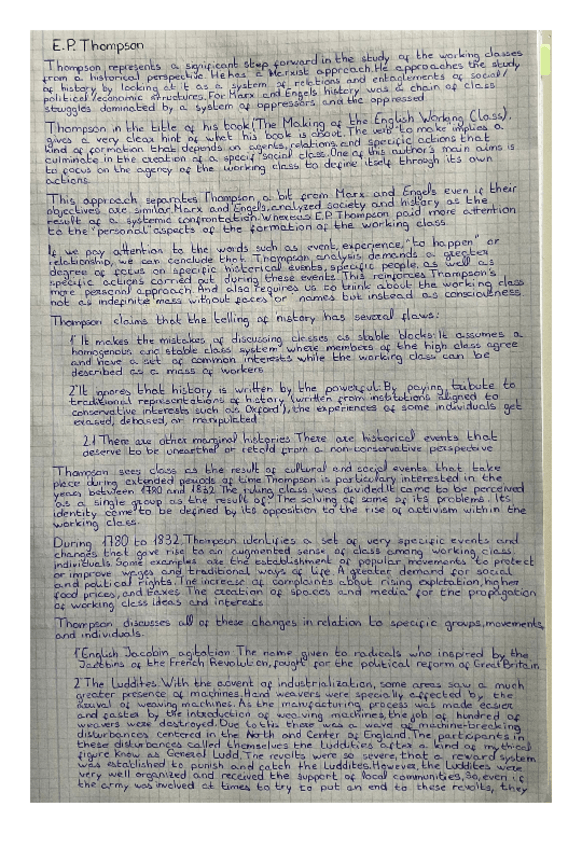 E.P. Thompson
Thompson represents a significant step forward in the study of the working classes
from a historical perspective. He has a Marxist approach. He approaches the study
of history by looking at it as a system of relations and entanglements of social/
political/economic structures. For Marx and Engels history was a chain of class
struggles dominated by a system of oppressors and the oppressed
Thompson in the title of his book (The Making of the English Working Class),
gives a very clear hint of what his book is about. The verb to make implies a
kind of formation that depends on agents, relations, and specific actions that
culminate in the creation of a specif social class. One of this author's main aims is
to focus on the agency of the working class to define itself through its own
actions.
This approach separates Thompson a bit from Marx and Engels even if their
objectives are similar. Marx and Engels, analyzed society and history as the
result of a systemic confrontation. Whereas E.P. Thompson paid more attention
to the "personal" aspects of the formation of the working class
If we pay attention to the words such as event, experience, "to happen" or
relationship, we can conclude that Thompson analysis demands a greater
degree of focus on specific historical events, specific people, as well as
specific actions carried out during these events. This reinforces Thompson's
more personal approach. And also requires us to think about the working class
not as indefinite "mass without faces" or "names but instead as consciousness
Thompson claims that the telling of history has several flaws:
1 It makes the mistakes of discussing classes as stable blocks: It assumes a
homogenous and stable class system" where members of the high class agree
and have a set of common interests while the working class can be
described as a mass of workers
2 It ignores that history is written by the powerful: By paying tribute to
traditional representations of history (written from institutions aligned to
conservative interests such as Oxford), the experiences of some individuals get
erased, debased, or manipulated
2.1 There are other marginal histories There are historical events that
deserve to be unearthed or retold from a non-conservative perspective
Thompson sees class as the result of cultural and social events that take
place during extended periods of time Thompson is particulary interested in the
years between 1780 and 1832. The ruling class was divided. It came to be perceived
as a single group as the result of: The solving of some of its problems. Its
identity came to be defined by its opposition to the rise of activism within the
working class.
During 1780 to 1832, Thompson identifies a set of very specific events and
changes that gave rise to an augmented sense of class among working class
individuals. Some examples are the establishment of popular movements to protect
or improve wages and traditional ways of life. A greater demand for social
and political rights. The increase of complaints about rising exploitation, higher
food prices, and taxes The creation of spaces and media for the propagation
of working class ideas and interests
Thompson, discusses all of these changes in relation to specific groups, movements,
and individuals.
1 English Jacobin agitation The name given to radicals who inspired by the
Jacobins of the French Revolution, fought for the political reform of Great Britain
2 The Luddites. With the advent of industrialization, some areas saw a much
greater presence of machines. Hand weavers were specially affected by the
arrival of weaving machines. As the manufacturing process was made easier
and faster by the introduction of weaving machines, the job of hundred of
weavers were destroyed. Due to this there was a wave of machine-breaking
disturbances centered in the North and Center of England. The participants in
these disturbances called themselves the Luddities after a kind of mythical
figure know as General Ludd. The revolts were so severe, that a reward system
was established to punish and catch the Luddites. However, the Luddites were
very well organized and received the support of local communities, So, even if
the army was involved at times to try to put an end to these revolts, they